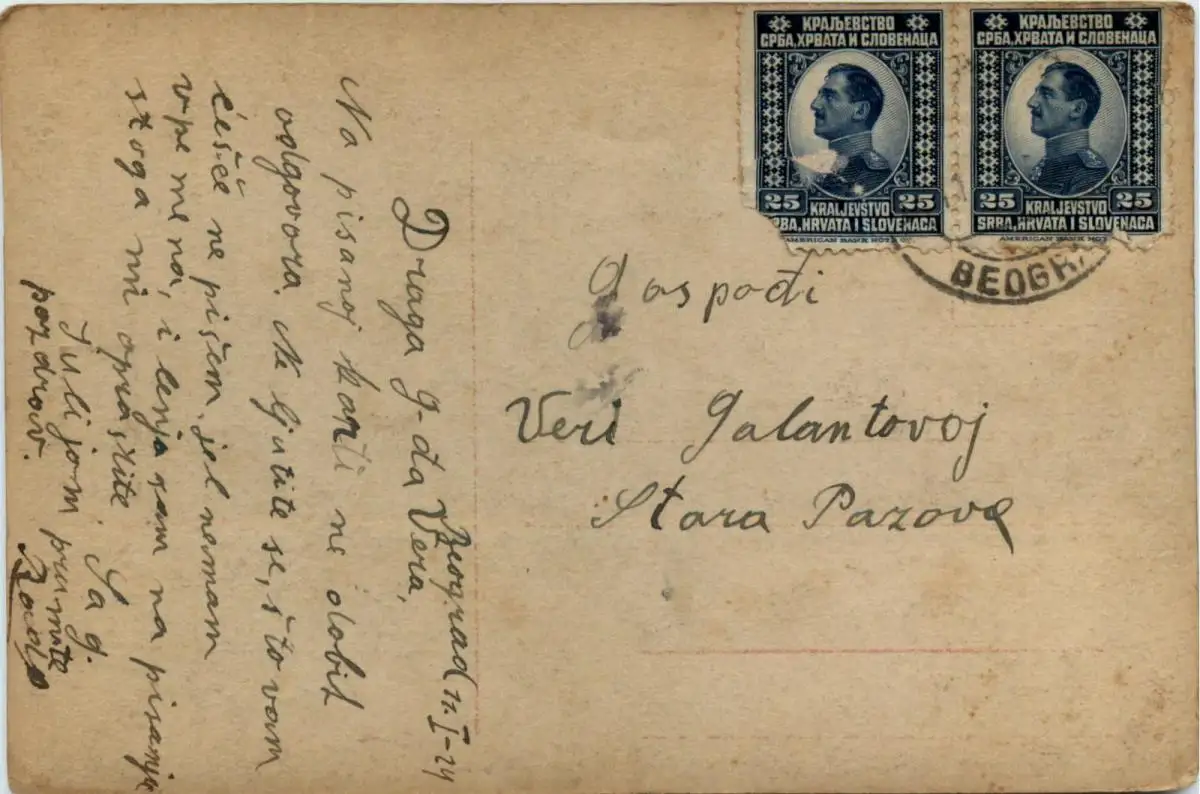 КРАЉЕВСТВО
СРБА, ХРВАТА И СЛОВЕНАЦА
25 25
KRALJEVSTVO
SRBA, HRVATA I SLOVENACA
AMERICAN BANK NOT
КРАЉЕВСТВО
СРБА, ХРВАТА И СЛОВЕНАЦА
25 25
KRALJEVSTVO
SRBA, HRVATA I SLOVENACA
AMERICAN BANK NOT
BEOGRA
Gospođi
Veri Galantovoj
Stara Pazova
Beograd 11. I-24
Draga g-đa Vera,
Na pisanoj karti ne dobih
odgovora. Ne ljutite se, što vam
češće ne pišem, jel nemam
vremena, i lenja sam na pisanje
stoga mi oprostite. Sa g.
Julijom primite
pozdrav.